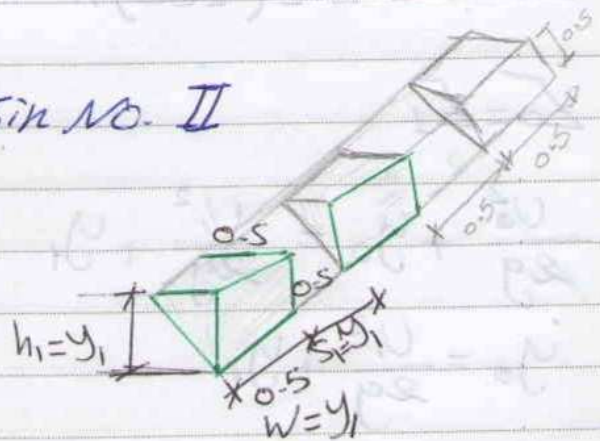 in No. II
0.5
0.5
0.5
0.5
0.5
h₁=y₁
S₁=y₁
0.5
W=y₁